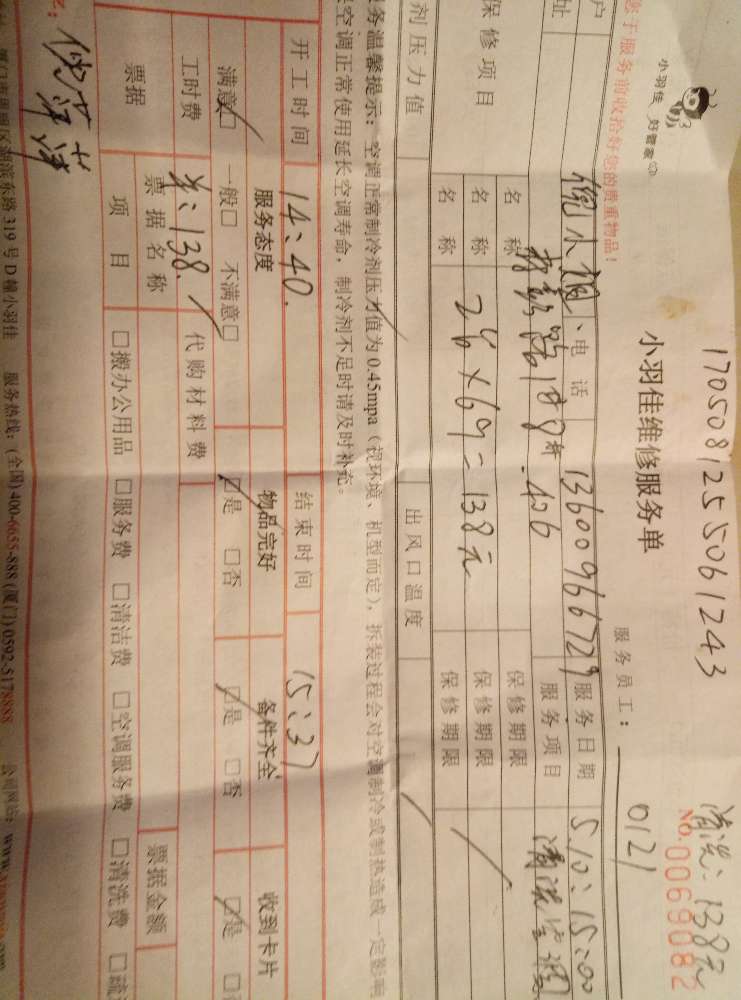 1705081255061243
清洗：138元
小羽佳 好管家
小羽佳维修服务单
No.0069082
服务员工：0121
您于服务前收拾好您的贵重物品！
户 倪小姐 电话 13600966729 服务日期 5/10：15:00
址 406 服务项目 清洗空调
保修项目
名称 保修期限
名称 2台×69=138元 保修期限
名称 保修期限
剂压力值 出风口温度
务温馨提示：空调正常制冷剂压力值为0.45mpa（视环境、机型而定），拆装过程会对空调制冷或制热造成一定影响
空调正常使用延长空调寿命，制冷剂不足时请及时补充。
开工时间 14:40. 结束时间 15:37
服务态度 物品完好 备件齐全 收到卡片
满意☑ 一般□ 不满意□ ☑是 □否 ☑是 □否 ☑是
工时费 138. 代购材料费
票据 票据名称 票据金额
项目 □搬办公用品 □服务费 □清洁费 □空调服务费 □清洗费
厦门市思明区湖滨东路319号D幢小羽佳 服务热线：(全国)400-6655-888 (厦门)0592-5178888 公司网站：www.